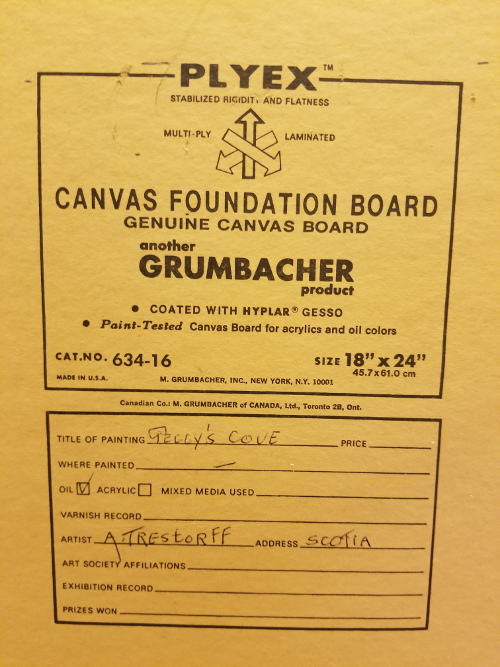 PLYEX™
STABILIZED RIGIDITY AND FLATNESS
MULTI-PLY LAMINATED
CANVAS FOUNDATION BOARD
GENUINE CANVAS BOARD
another
GRUMBACHER
product
• COATED WITH HYPLAR® GESSO
• Paint-Tested Canvas Board for acrylics and oil colors
CAT.NO. 634-16 SIZE 18” x 24”
45.7x61.0 cm
MADE IN U.S.A. M. GRUMBACHER, INC., NEW YORK, N.Y. 10001
Canadian Co.: M. GRUMBACHER of CANADA, Ltd., Toronto 2B, Ont.
TITLE OF PAINTING COVE PRICE
WHERE PAINTED —
OIL ☑ ACRYLIC ☐ MIXED MEDIA USED
VARNISH RECORD
ARTIST A TRESTORFF ADDRESS SCOTIA
ART SOCIETY AFFILIATIONS
EXHIBITION RECORD
PRIZES WON